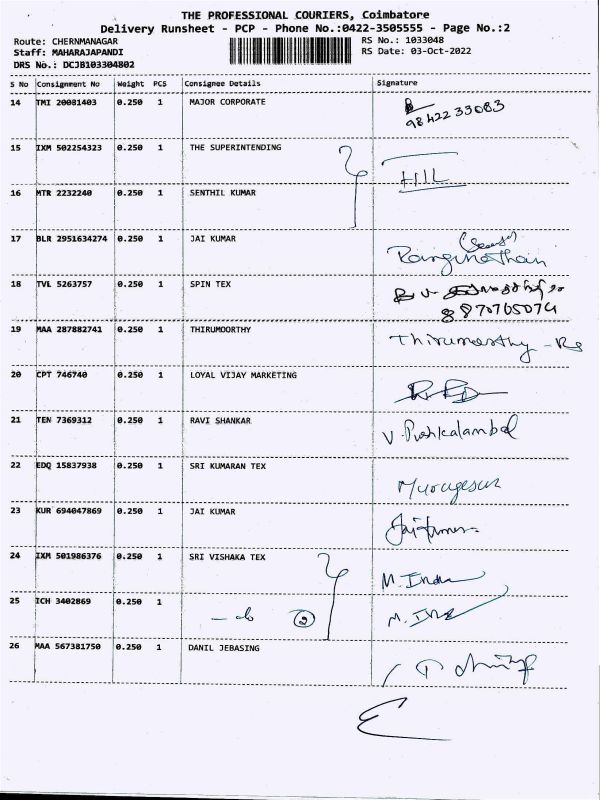 THE PROFESSIONAL COURIERS, Coimbatore
Delivery Runsheet - PCP - Phone No.:0422-3505555 - Page No.:2
Route: CHERNMANAGAR
RS No.: 1033048
Staff: MAHARAJAPANDI
RS Date: 03-Oct-2022
DRS No.: DCJB103304802
S No Consignment No Weight PCS Consignee Details Signature
14 TMI 20081403 0.250 1 MAJOR CORPORATE
9842233083
15 IXM 502254323 0.250 1 THE SUPERINTENDING
16 MTR 2232240 0.250 1 SENTHIL KUMAR
17 BLR 2951634274 0.250 1 JAI KUMAR
18 TVL 5263757 0.250 1 SPIN TEX
8870765074
19 MAA 287882741 0.250 1 THIRUMOORTHY Thirumoorthy
20 CPT 746740 0.250 1 LOYAL VIJAY MARKETING
21 TEN 7369312 0.250 1 RAVI SHANKAR V. Pushkalambal
22 EDQ 15837938 0.250 1 SRI KUMARAN TEX Murugesan
23 KUR 694047869 0.250 1 JAI KUMAR
24 IXM 501986376 0.250 1 SRI VISHAKA TEX M. Indra
25 ICH 3402869 0.250 1 2
26 MAA 567381750 0.250 1 DANIL JEBASING